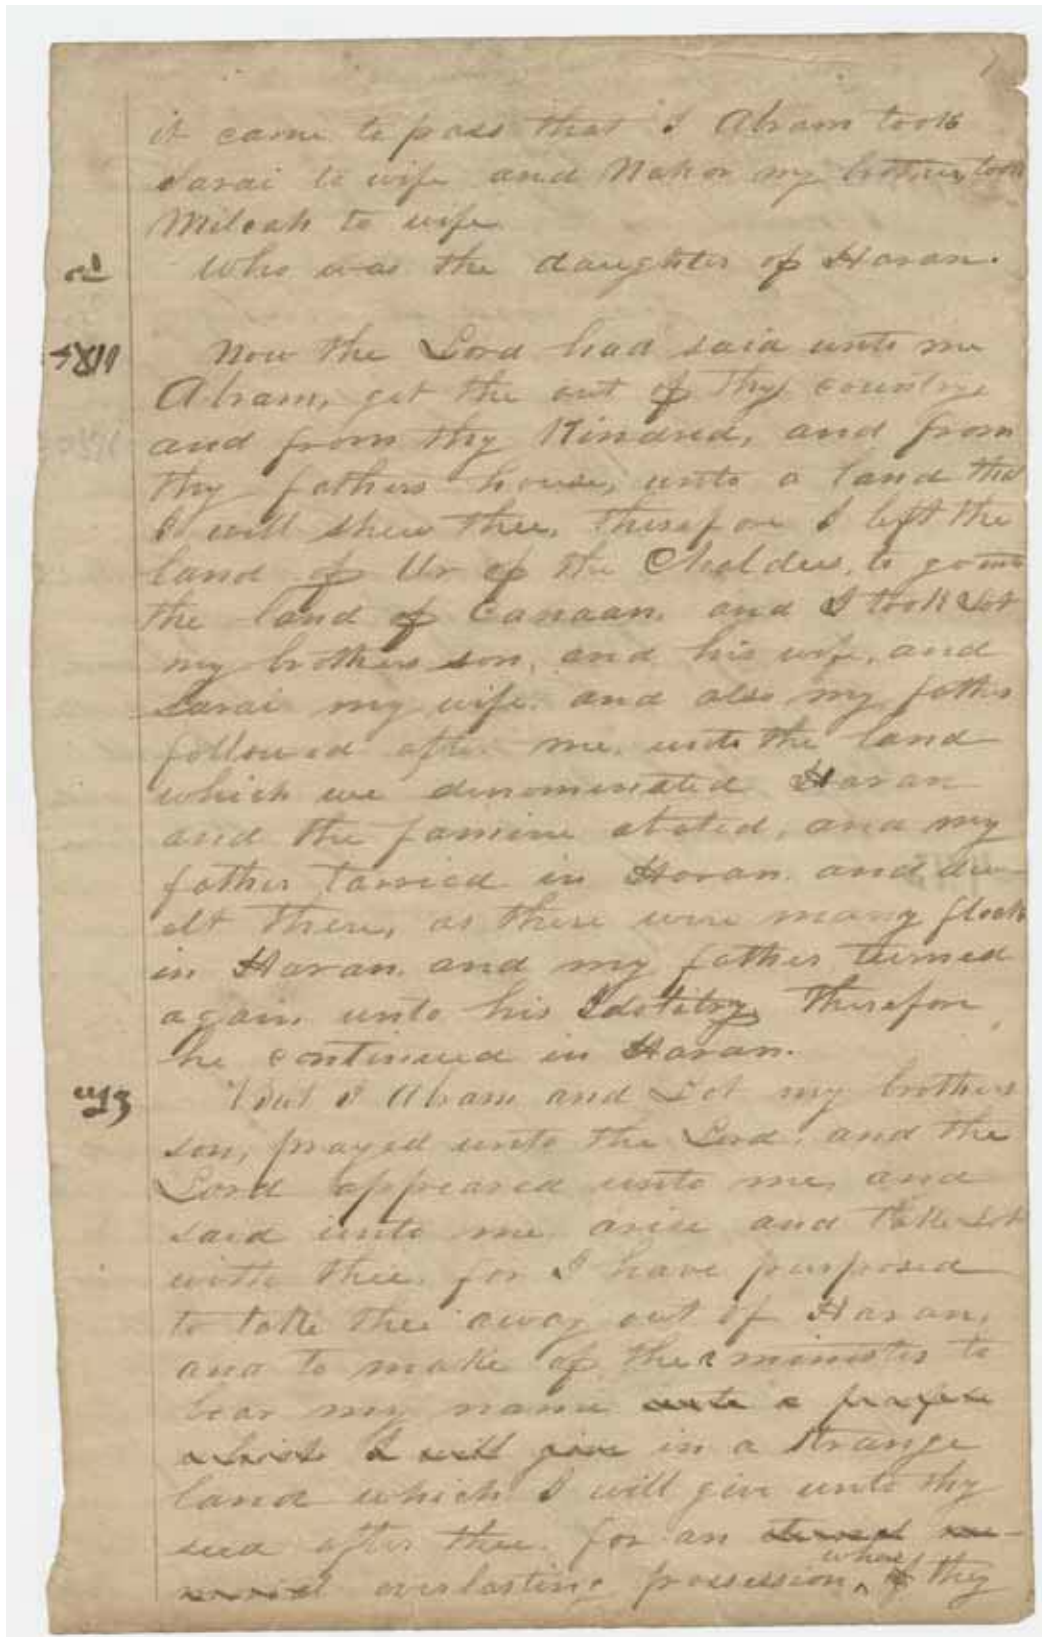 it came to pass that I Abram took
Sarai to wife and Nahor my brother, took
Milcah to wife
Who was the daughter of Haran.
Now the Lord had said unto me
Abram, get the out of thy country,
and from thy Kindred, and from
thy fathers house, unto a land that
I will shew thee, therefore I left the
land of Ur of the Chaldees, to go into
the land of Canaan, and I took Lot
my brothers son, and his wife, and
Sarai my wife. and also my father
followed after me, unto the land
which we denominated Haran
and the famine abated, and my
father tarried in Haran. and dw-
elt there, as there were many flocks
in Haran. and my father turned
again unto his Idolitry, therefore
he continued in Haran.
But I Abram and Lot my brothers
son, prayed unto the Lord, and the
Lord appeared unto me, and
said unto me, arise and take Lot
with thee, for I have purposed
to take thee away out of Haran,
and to make of thee a minister to
bear my name unto a people
which I will give in a strange
land which I will give unto thy
seed after thee, for an
everlasting possession, when if they